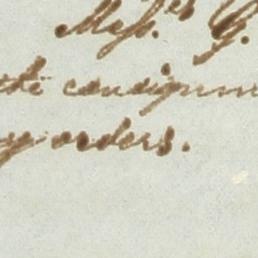 Mess.rs G.
the consignm
y orders.